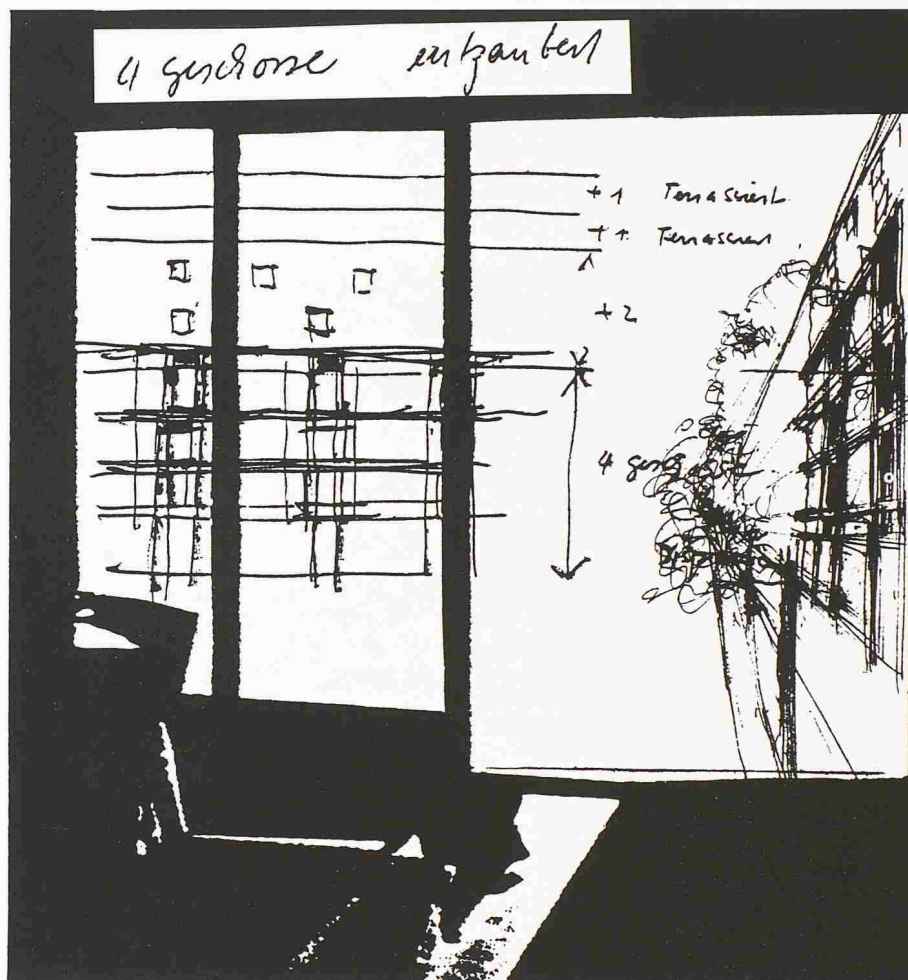 4 geschosse entzaubert
+ 1 Terrassiert
+ 1 Terrassiert
+ 2
4 gesch